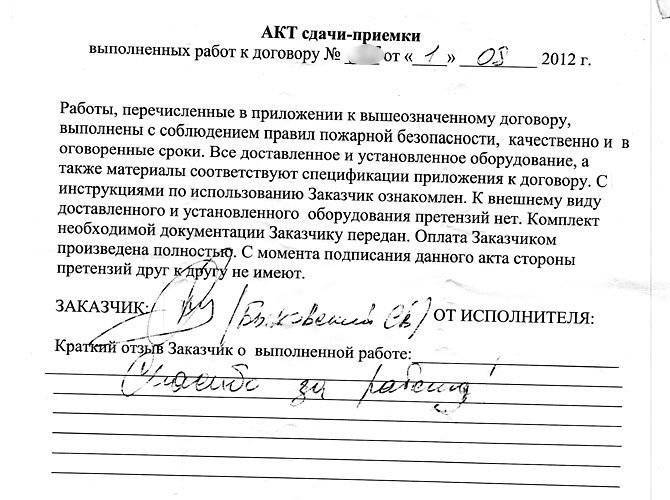 АКТ сдачи-приемки
выполненных работ к договору № от «1» 08 2012 г.
Работы, перечисленные в приложении к вышеозначенному договору,
выполнены с соблюдением правил пожарной безопасности, качественно и в
оговоренные сроки. Все доставленное и установленное оборудование, а
также материалы соответствуют спецификации приложения к договору. С
инструкциями по использованию Заказчик ознакомлен. К внешнему виду
доставленного и установленного оборудования претензий нет. Комплект
необходимой документации Заказчику передан. Оплата Заказчиком
произведена полностью. С момента подписания данного акта стороны
претензий друг к другу не имеют.
ЗАКАЗЧИК: (Быховский) ОТ ИСПОЛНИТЕЛЯ:
Краткий отзыв Заказчик о выполненной работе:
Спасибо за работу